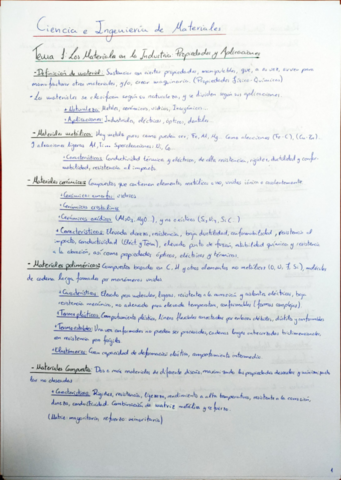 Ciencia e Ingeniería de Materiales
Tema 1: Los Materiales en la Industria. Propiedades y Aplicaciones
- Definición de material: Sustancia con ciertas propiedades, manipulables, que, a su vez, sirven para
manufacturar otros materiales, y/o, crear maquinaria. (Propiedades físico-Químicas)
- Los materiales se clasifican según su naturaleza, y se dividen según sus aplicaciones.
• Naturaleza: Metales, cerámicos, vidrios,
• Aplicaciones: Industriales, eléctricos, ópticos, textiles.
- Materiales metálicos: Muy
Al, Ti
• Características: Conductividad térmica y eléctrica, de alta resistencia, rigidez, ductilidad y confor-
matabilidad, resistencia al impacto
- Materiales cerámicos: Compuestos que contienen elementos metálicos o no, unidos iónica o covalentemente
• Cerámicos amorfos: vidrios
• Cerámicos cristalinos
• Cerámicos oxídicos
• Características: Elevada dureza, resistencia, baja ductilidad, conformabilidad, resistencia al
impacto, conductividad elevado punto de fusión, estabilidad química y resistencia
a la corrosión, así como propiedades ópticas, eléctricas y térmicas
- Materiales poliméricos: Compuestos basados en C, H y otros elementos no metálicos
de cadena larga formadas por monómeros unidos
• Características: Elevado peso molecular, ligeros, resistentes a la corrosión y aislantes eléctricos, baja
resistencia mecánica, no adecuados para elevadas temperaturas, conformables (formas complejas)
• Termoplásticos: Comportamiento plástico, lineales flexibles enrollados por enlaces débiles, dúctiles y conformables
• Termoestables: Una vez conformados no pueden ser procesados, cadenas largas entrecruzadas
son resistentes pero frágiles
• Elastómeros: Gran capacidad de deformación elástica, comportamiento intermedio
- Materiales Compuestos: Dos o más materiales de diferente diseño, maximizando las propiedades deseadas y minimizando
las no deseadas
• Características: Rigidez, resistencia, ligereza, rendimiento a altas temperaturas, resistente a la corrosión
dureza, conductividad. Combinación de matriz metálica y refuerzo
(Matriz mayoritaria, refuerzo minoritario)